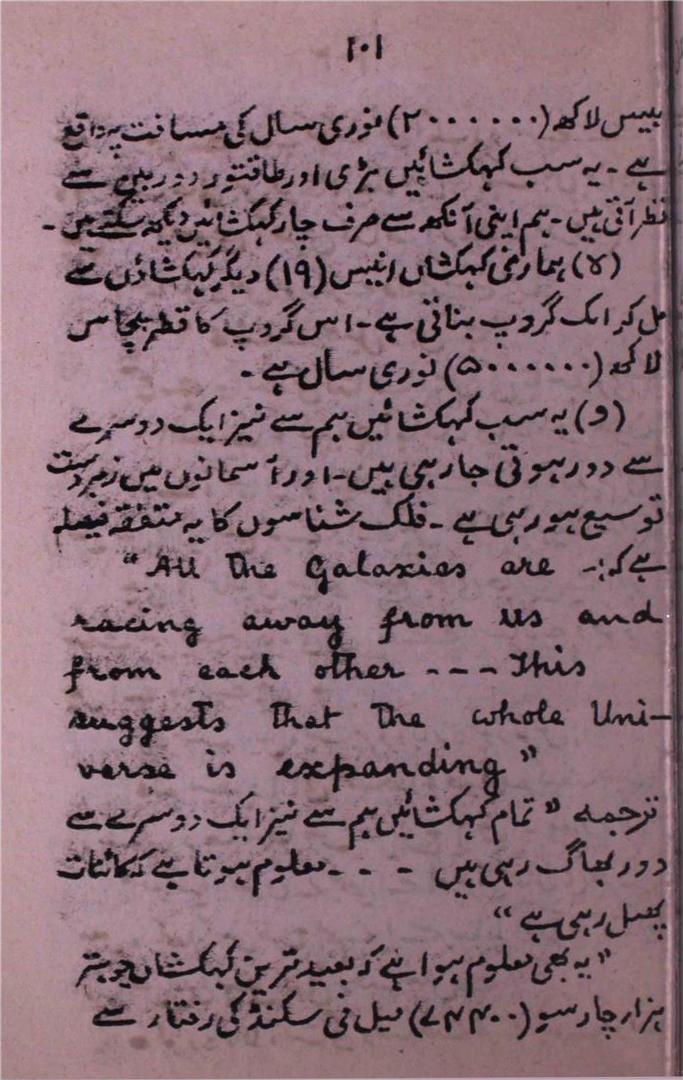 ۱۰۱
بیس لاکھ (۲۰۰۰۰۰۰) نوری سال کی مسافت پہ واقع
ہے ۔ یہ سب کہکشائیں بڑی اور طاقتور دوربین سے
نظر آتی ہیں ۔ ہم اپنی آنکھ سے صرف چار کہکشائیں دیکھ سکتے ہیں ۔
ہماری کہکشاں انیس (۱۹) دیگر کہکشاؤں سے
مل کر ایک گروپ بناتی ہے ۔ اس گروپ کا قطر پچاس
لاکھ (۵۰۰۰۰۰۰) نوری سال ہے ۔
(۹) یہ سب کہکشائیں ہم سے نیز ایک دوسرے
سے دور ہوتی جا رہی ہیں ۔ اور آسمانوں میں زبردست
توسیع ہو رہی ہے ۔ فلک شناسوں کا یہ متفقہ فیصلہ
ہے کہ :۔ "All the Galaxies are
racing away from us and
from each other --- This
suggests that the whole Uni-
verse is expanding"
ترجمہ " تمام کہکشائیں ہم سے نیز ایک دوسرے سے
دور بھاگ رہی ہیں ۔ ۔ ۔ معلوم ہوتا ہے کہ کائنات
پھیل رہی ہے "
" یہ بھی معلوم ہوا ہے کہ بعید ترین کہکشاں چوہتر
ہزار چار سو (۷۴۴۰۰) میل فی سکنڈ کی رفتار سے